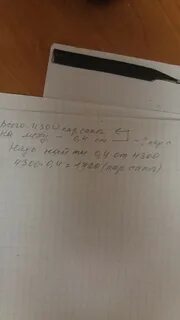 Всего - 4300 пар сапог
на меху - 0,4 см - ? пар с
Надо найти 0,4 от 4300
4300·0,4=1720(пар сапог)